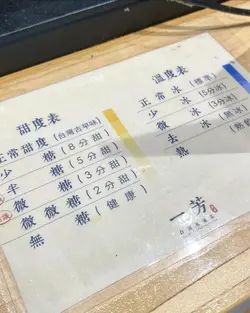 甜度表
正常甜度(台灣古早味)
少糖(8分甜)
半糖(5分甜)
微糖(3分甜)
微微糖(2分甜)
無糖(健康)
溫度表
正常冰(標準)
少冰(5分冰)
微冰(3分冰)
去冰
熱
一芳